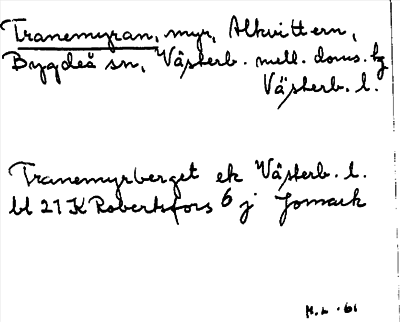 Tranemyran, myr, Alkvittern,
Bygdeå sn, Västerb. mell. doms. hg
Västerb. l.
Tranemyrberget ek Västerb. l.
bl 21 K Robertsfors 6 j Jomark
M.L. -61